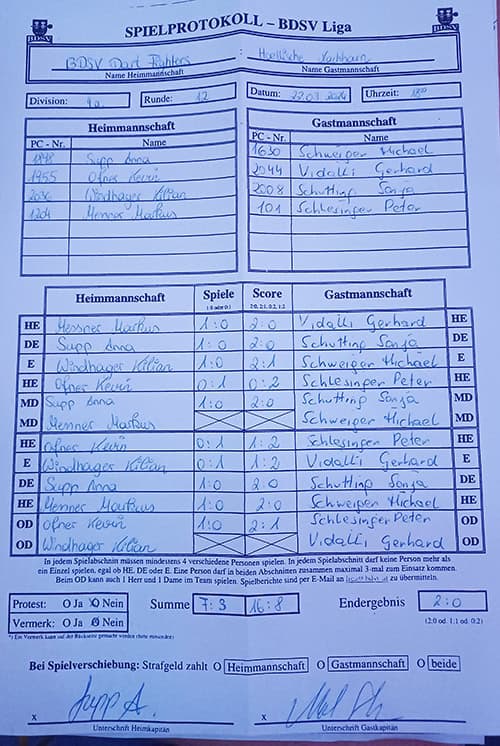 SPIELPROTOKOLL – BDSV Liga
BDSV
BDSV
BDSV Dart Fighters : Hoellische Nachbarn
Name Heimmannschaft Name Gastmannschaft
Division: 4a Runde: 12 Datum: 22.03.2024 Uhrzeit:
Heimmannschaft Gastmannschaft
PC - Nr. Name PC - Nr. Name
1898 Supp Anna 1630 Schweiger Michael
1955 Ofner Kevin 2044 Vidalli Gerhard
2036 Windhager Kilian 2008 Schutting Sonja
1204 Messner Markus 101 Schlesinger Peter
Heimmannschaft Spiele Score Gastmannschaft
(1:0 oder 0:1) 2:0, 2:1, 0:2, 1:2
HE Messner Markus 1:0 2:0 Vidalli Gerhard HE
DE Supp Anna 1:0 2:0 Schutting Sonja DE
E Windhager Kilian 1:0 2:1 Schweiger Michael E
HE Ofner Kevin 0:1 0:2 Schlesinger Peter HE
MD Supp Anna 1:0 2:0 Schutting Sonja MD
MD Messner Markus Schweiger Michael MD
HE Ofner Kevin 0:1 1:2 Schlesinger Peter HE
E Windhager Kilian 0:1 1:2 Vidalli Gerhard E
DE Supp Anna 1:0 2:0 Schutting Sonja DE
HE Messner Markus 1:0 2:0 Schweiger Michael HE
OD Ofner Kevin 1:0 2:1 Schlesinger Peter OD
OD Windhager Kilian Vidalli Gerhard OD
In jedem Spielabschnitt müssen mindestens 4 verschiedene Personen spielen. In jedem Spielabschnitt darf keine Person mehr als
ein Einzel spielen, egal ob HE, DE oder E. Eine Person darf in beiden Abschnitten zusammen maximal 3-mal zum Einsatz kommen.
Beim OD kann auch 1 Herr und 1 Dame im Team spielen. Spielberichte sind per E-Mail an zu übermitteln.
Protest: O Ja O Nein Summe 7:3 16:8 Endergebnis 2:0
Vermerk: O Ja O Nein (2:0 od. 1:1 od. 0:2)
*) Ein Vermerk kann auf der Rückseite gemacht werden
Bei Spielverschiebung: Strafgeld zahlt O Heimmannschaft O Gastmannschaft O beide
x Supp A. x
Unterschrift Heimkapitän Unterschrift Gastkapitän